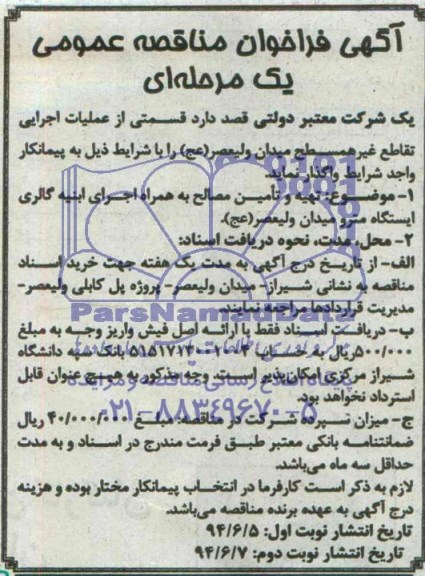 آگهی فراخوان مناقصه عمومی
یک مرحله‌ای
یک شرکت معتبر دولتی قصد دارد قسمتی از عملیات اجرایی
تقاطع غیرهمسطح میدان ولیعصر(عج) را با شرایط ذیل به پیمانکار
واجد شرایط واگذار نماید.
۱- موضوع: تهیه و تأمین مصالح به همراه اجرای ابنیه گالری
ایستگاه مترو میدان ولیعصر(عج).
۲- محل، مدت، نحوه دریافت اسناد:
الف- از تاریخ درج آگهی به مدت یک هفته جهت خرید اسناد
مناقصه به نشانی شیراز- میدان ولیعصر- پروژه پل کابلی ولیعصر-
مدیریت قراردادها مراجعه نمایند.
ParsNamadData
ب- دریافت اسناد فقط با ارائه اصل فیش واریز وجه به مبلغ
۵۰۰/۰۰۰ریال به حساب بانک سپه دانشگاه
شیراز مرکزی امکان‌پذیر است. وجه مذکور به هیچ عنوان قابل
استرداد نخواهد بود.
۰۲۱-۸۸۳۴۹۶۷۰-۵
ج- میزان سپرده شرکت در مناقصه: مبلغ ۴۰/۰۰۰/۰۰۰ ریال
ضمانتنامه بانکی معتبر طبق فرمت مندرج در اسناد و به مدت
حداقل سه ماه می‌باشد.
لازم به ذکر است کارفرما در انتخاب پیمانکار مختار بوده و هزینه
درج آگهی به عهده برنده مناقصه می‌باشد.
تاریخ انتشار نوبت اول: ۹۴/۶/۵
تاریخ انتشار نوبت دوم: ۹۴/۶/۷